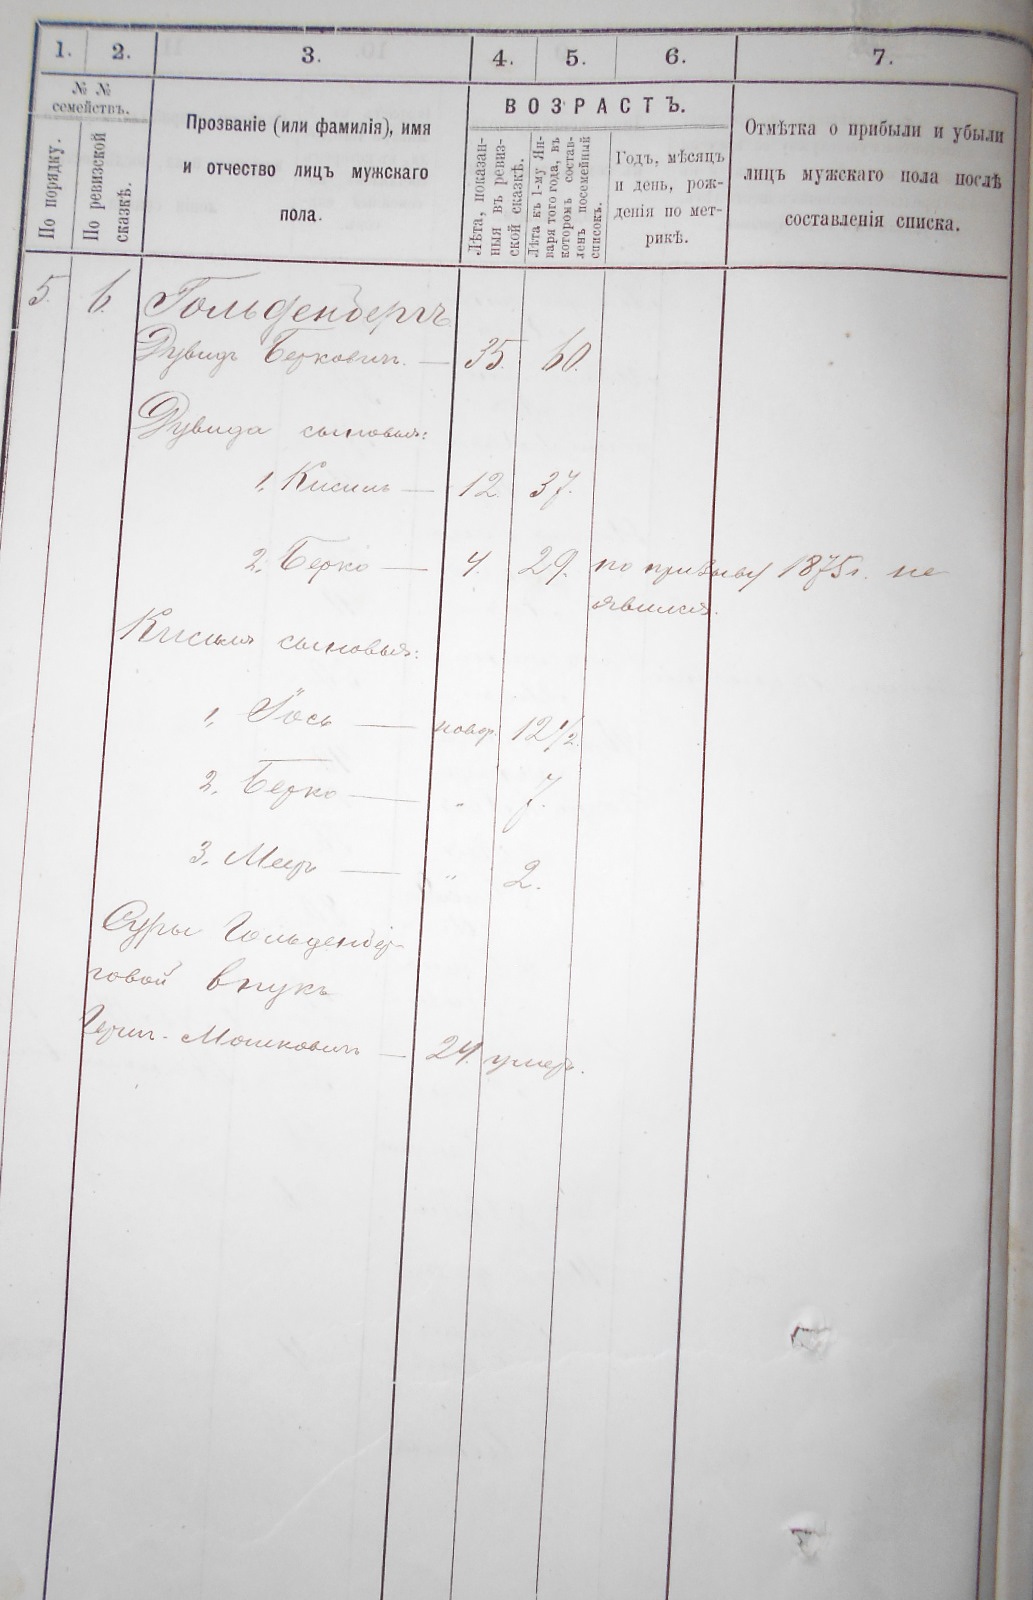 1. 2. 3. 4. 5. 6. 7.
№ № семействъ.
По порядку.
По ревизской сказкѣ.
Прозваніе (или фамилія), имя
и отчество лицъ мужскаго
пола.
ВОЗРАСТЪ.
Лѣта, показан-
ныя въ ревиз-
ской сказкѣ.
Лѣта къ 1-му Ян-
варя того года, въ
которомъ состав-
ленъ посемейный
списокъ.
Годъ, мѣсяцъ
и день, рож-
денія по мет-
рикѣ.
Отмѣтка о прибыли и убыли
лицъ мужскаго пола послѣ
составленія списка.
5. 6. Гольденбергъ
Дувидъ Берковичъ. — 35. 60.
Дувида сыновья:
1. Кисиль — 12. 37.
2. Берко — 4. 29. по призыву 1875 г. не
явился.
Кисиля сыновья:
1. Іось — новор. 12 1/2.
2. Берко — „ 7.
3. Меер — „ 2.
Суры Гольденбер-
говой внукъ
Герш-Мошковичъ — 24. умер.